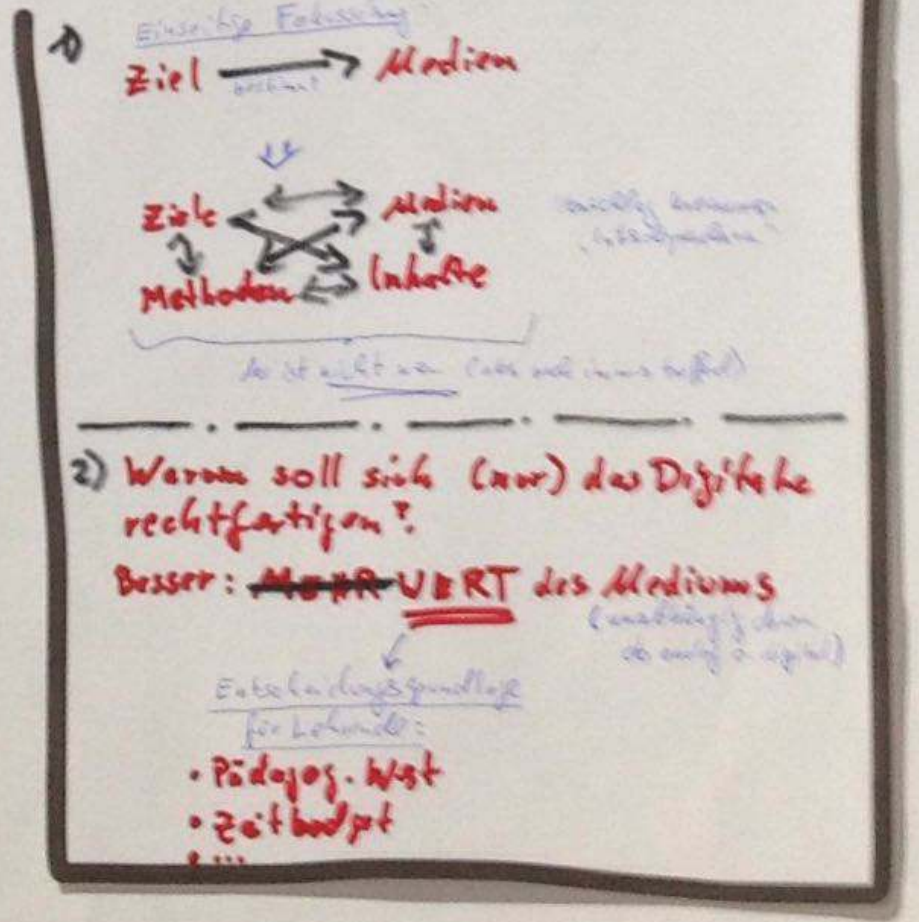 1) Einseitige Fokussierung
Ziel → Medien
bestimmt
Ziele Medien
Methoden Inhalte
"Interdependenz"
Das ist nicht neu (aber noch immer
2) Warum soll sich (nur) das Digitale
rechtfertigen?
Besser: MEHR WERT des Mediums
(unabhängig davon
ob analog o. digital)
Entscheidungsgrundlage
für Lehrende:
• Pädagog. Wert
• Zeitbudget
• ...